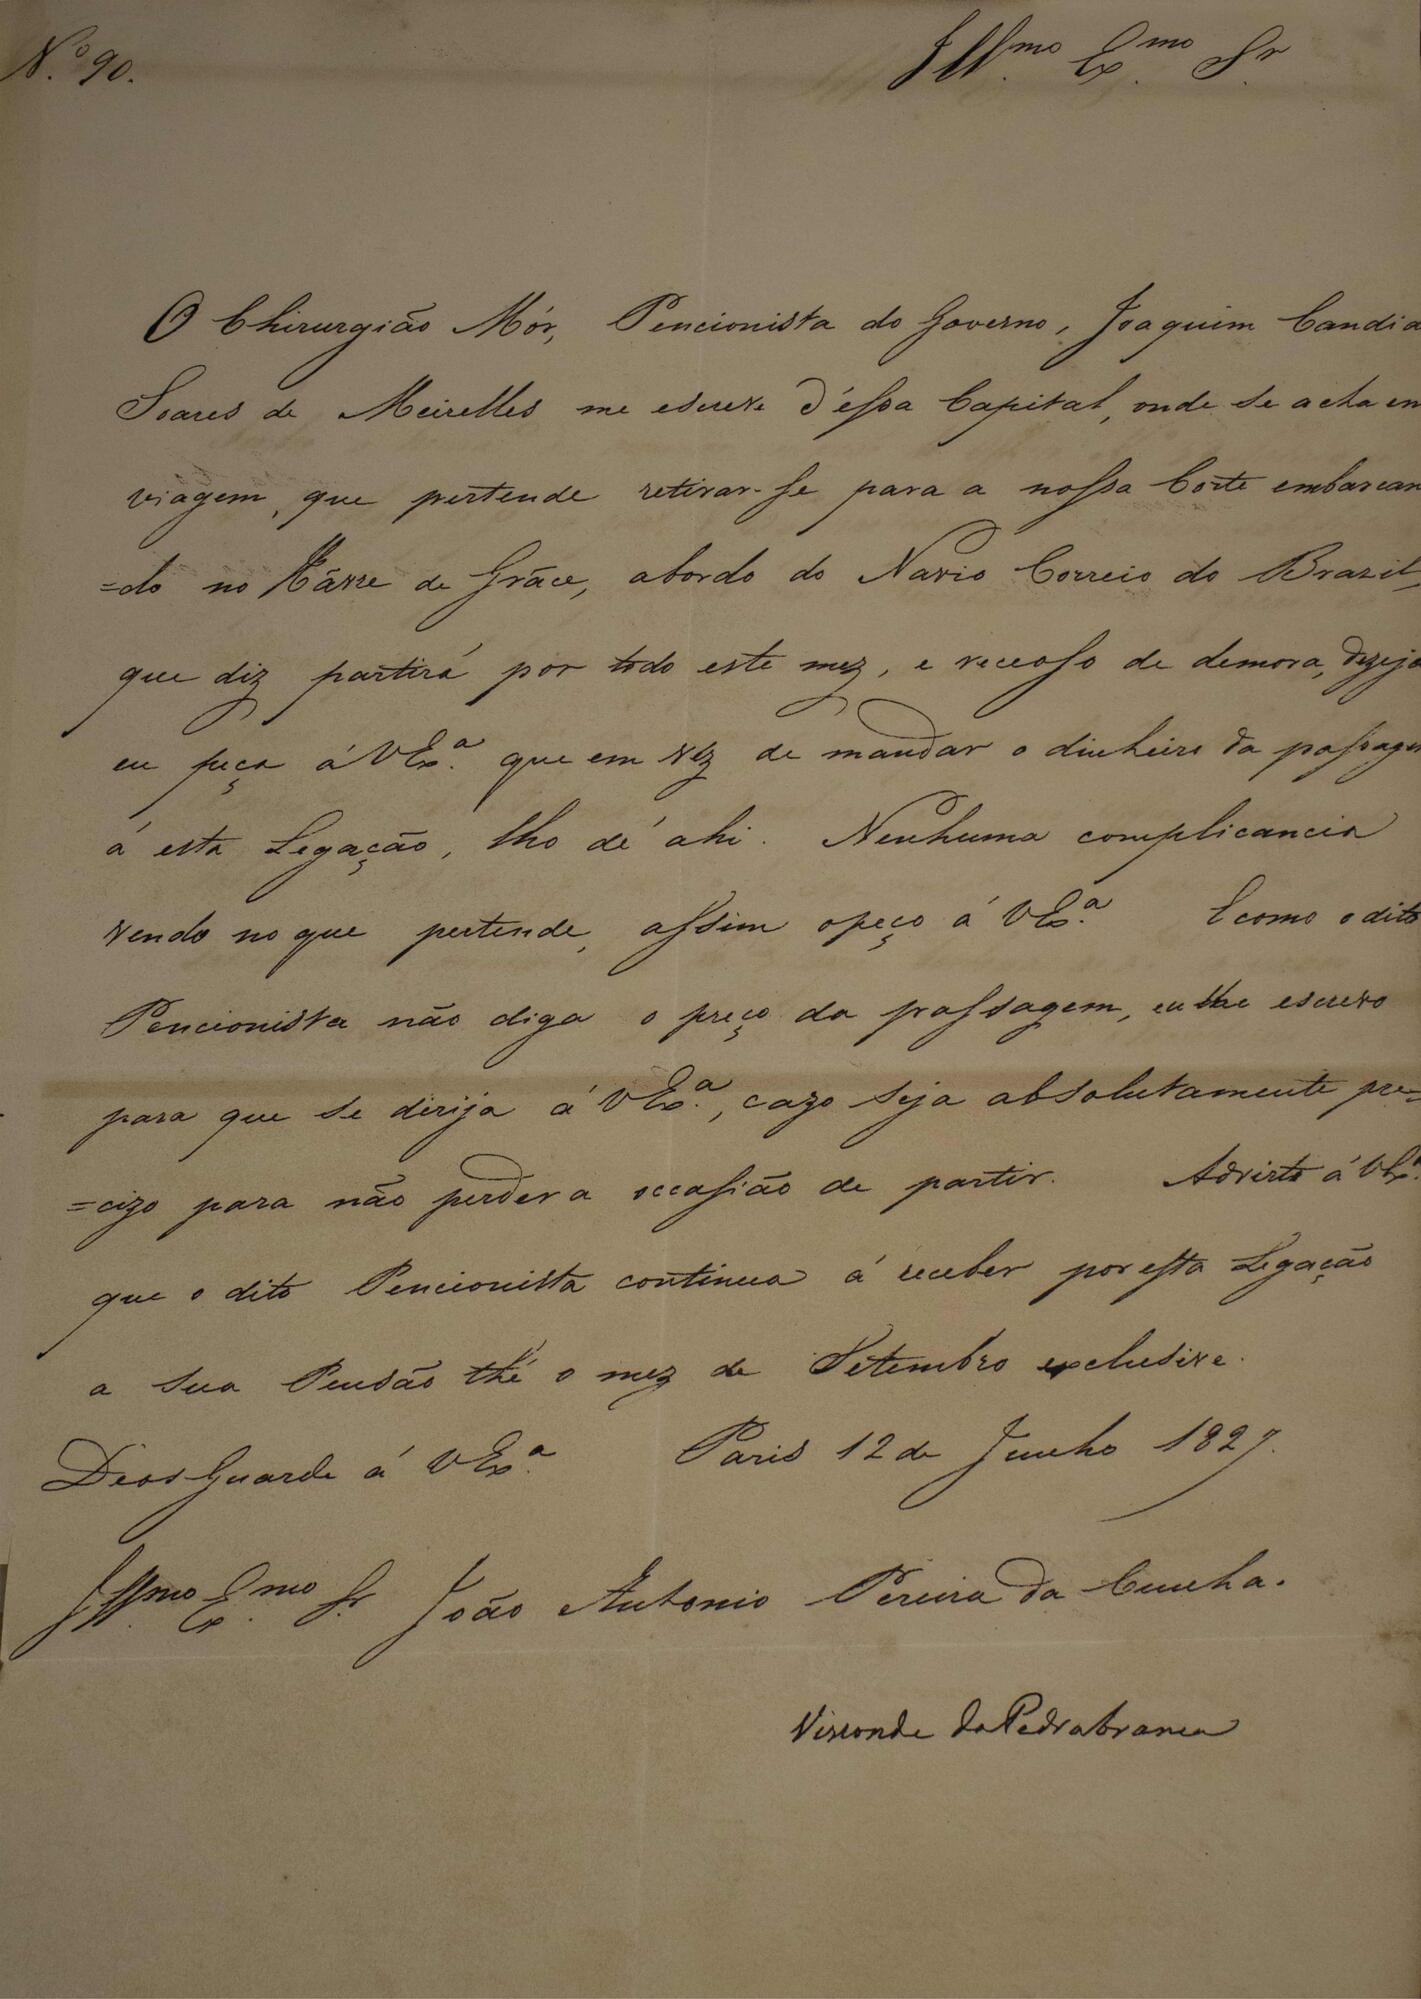 N.º 90.
Ill.mo Ex.mo Sr
O Chirurgião Mór, Pencionista do Governo, Joaquim Candid
Soares de Meirelles me escreve d'essa Capital, onde se acha em
viagem, que pertende retirar-se para a nossa Corte embarcan
=do no Hâvre de Grâce, abordo do Navio Correio do Brazil,
que diz partirá por todo este mez, e receoso de demora, dezeja
eu peça á V Ex.ª que em vez de mandar o dinheiro da passagem
á esta Legação, lho dê ahi. Nenhuma complicancia
vendo no que pertende, assim o peço á V Ex.ª E como o dito
Pencionista não diga o preço da passagem, eu lhe escrevo
para que se dirija á V Ex.ª, cazo seja absolutamente pre=
=cizo para não perder a occasião de partir. Advirto á V Ex.ª
que o dito Pencionista continua á receber por esta Legação
a sua Pensão thé o mez de Setembro exclusive.
Deos Guarde á V Ex.ª Paris 12 de Junho 1827.
Ill.mo Ex.mo Sr João Antonio Pereira da Cunha.
Visconde da Pedrabranca